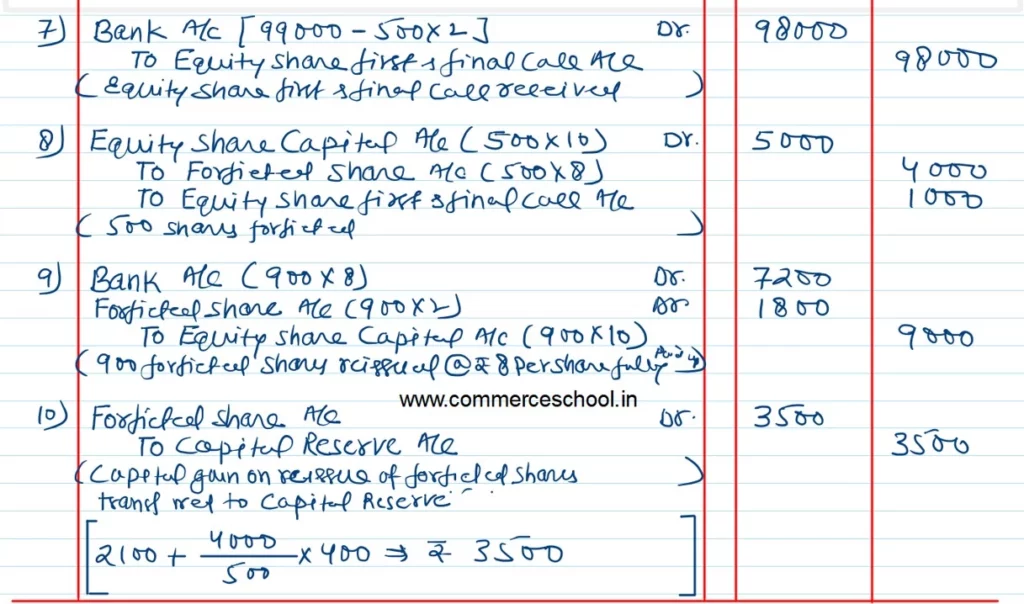 7) Bank A/c [99000 - 500×2] Dr. 98000
To Equity share first & final Call A/c 98000
(Equity share first & final Call received)
8) Equity Share Capital A/c (500×10) Dr. 5000
To Forficted Share A/c (500×8) 4000
To Equity share first & final Call A/c 1000
(500 shares forficted)
9) Bank A/c (900×8) Dr. 7200
Forficted share A/c (900×2) Dr 1800
To Equity share Capital A/c (900×10) 9000
(900 forficted shares reissued @ ₹ 8 Per share fully Paid up)
www.commerceschool.in
10) Forficted share A/c Dr. 3500
To Capital Reserve A/c 3500
(Capital gain on reissue of forficted shares
transfrred to Capital Reserve)
[2100 + 4000/500 × 400 ⇒ ₹ 3500]